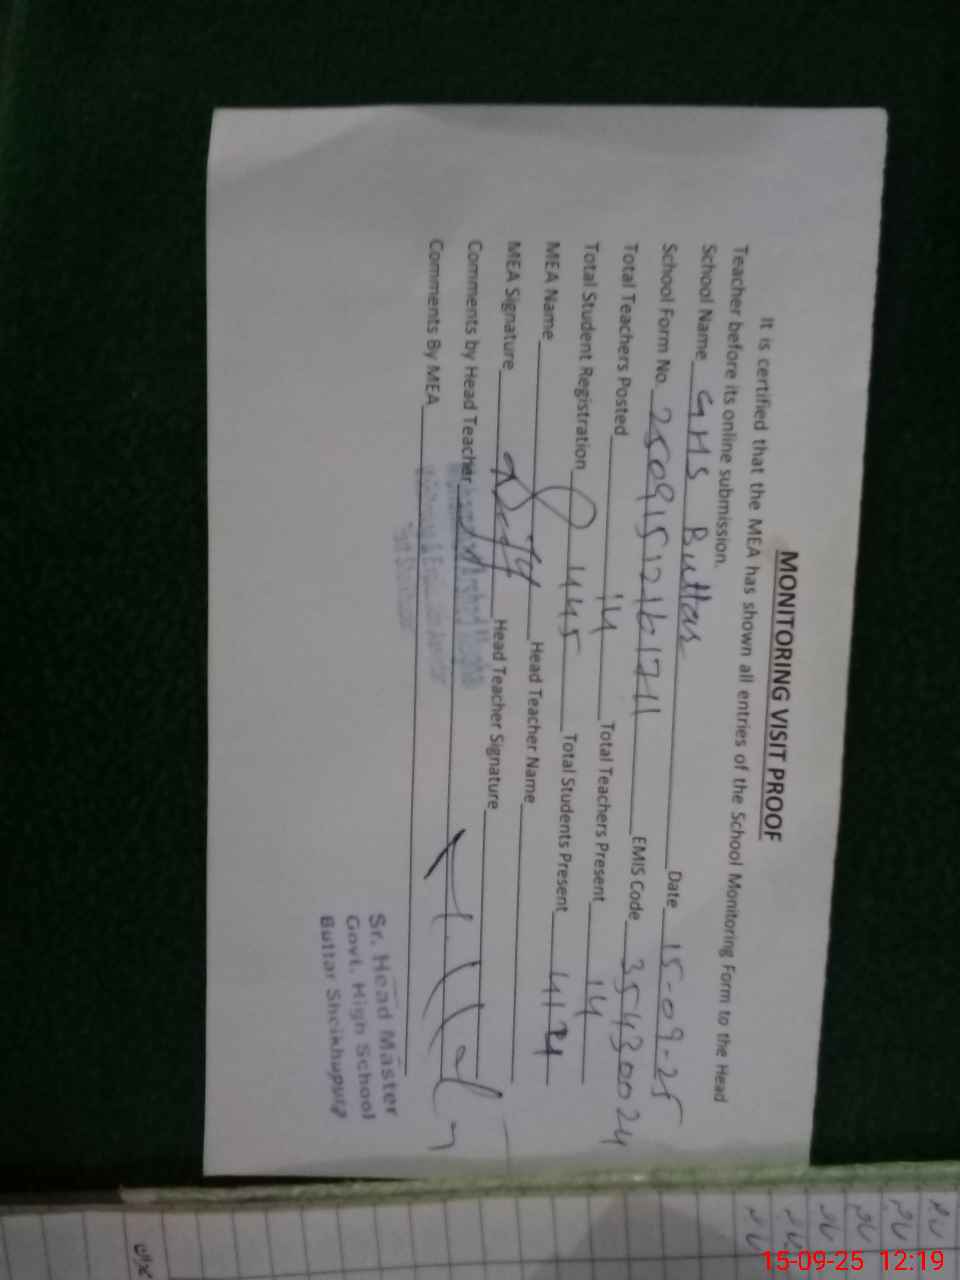 MONITORING VISIT PROOF
It is certified that the MEA has shown all entries of the School Monitoring Form to the Head
Teacher before its online submission.
School Name GHS Buttar Date 15-09-25
School Form No. 25091512161711 EMIS Code 35430024
Total Teachers Posted 14 Total Teachers Present 14
Total Student Registration 445 Total Students Present
MEA Name Head Teacher Name
MEA Signature Head Teacher Signature
Comments by Head Teacher
Comments By MEA
Sr. Head Master
Govt. High School
Buttar Sheikhupura
15-09-25 12:19